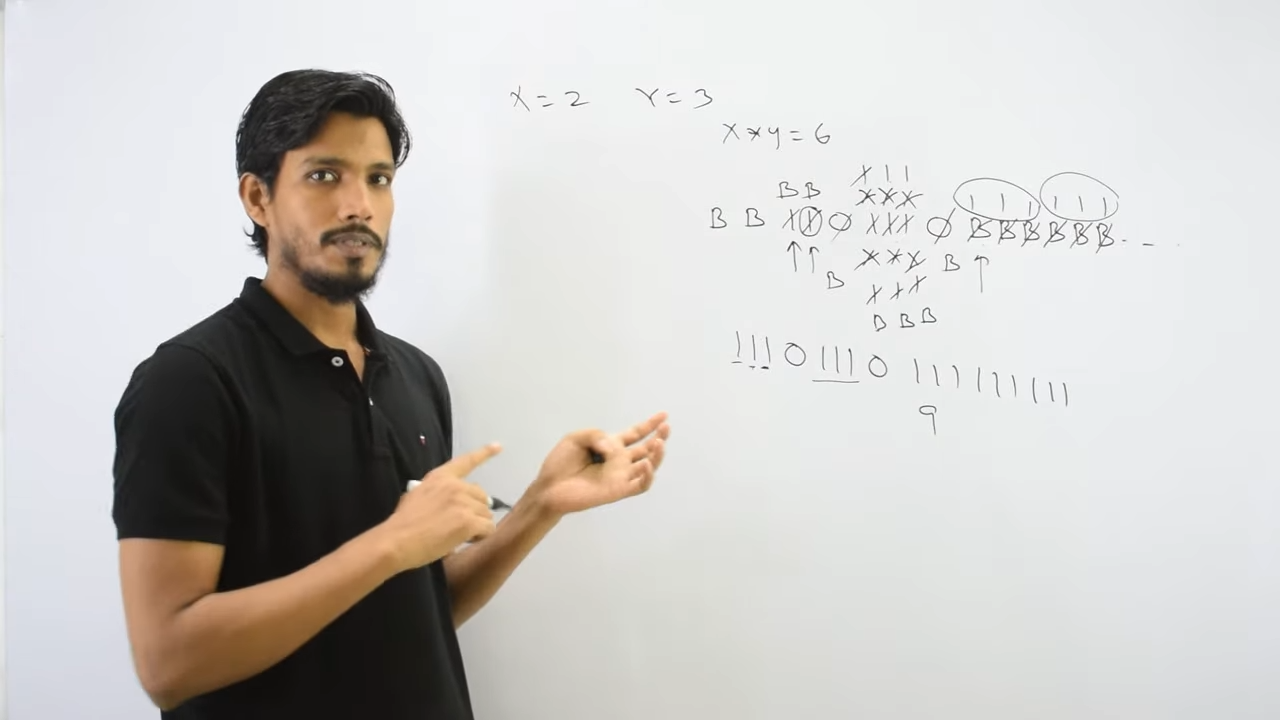 X = 2 Y = 3
X * y = 6
X 1 1
B B X X X
B B X X 0 X X X 0 B B B B B B . . –
1 1 1 1 1 1
↑ ↑ B X X X B ↑
X X X
B B B
1 1 1 0 1 1 1 0 1 1 1 1 1 1 1 1 1
9